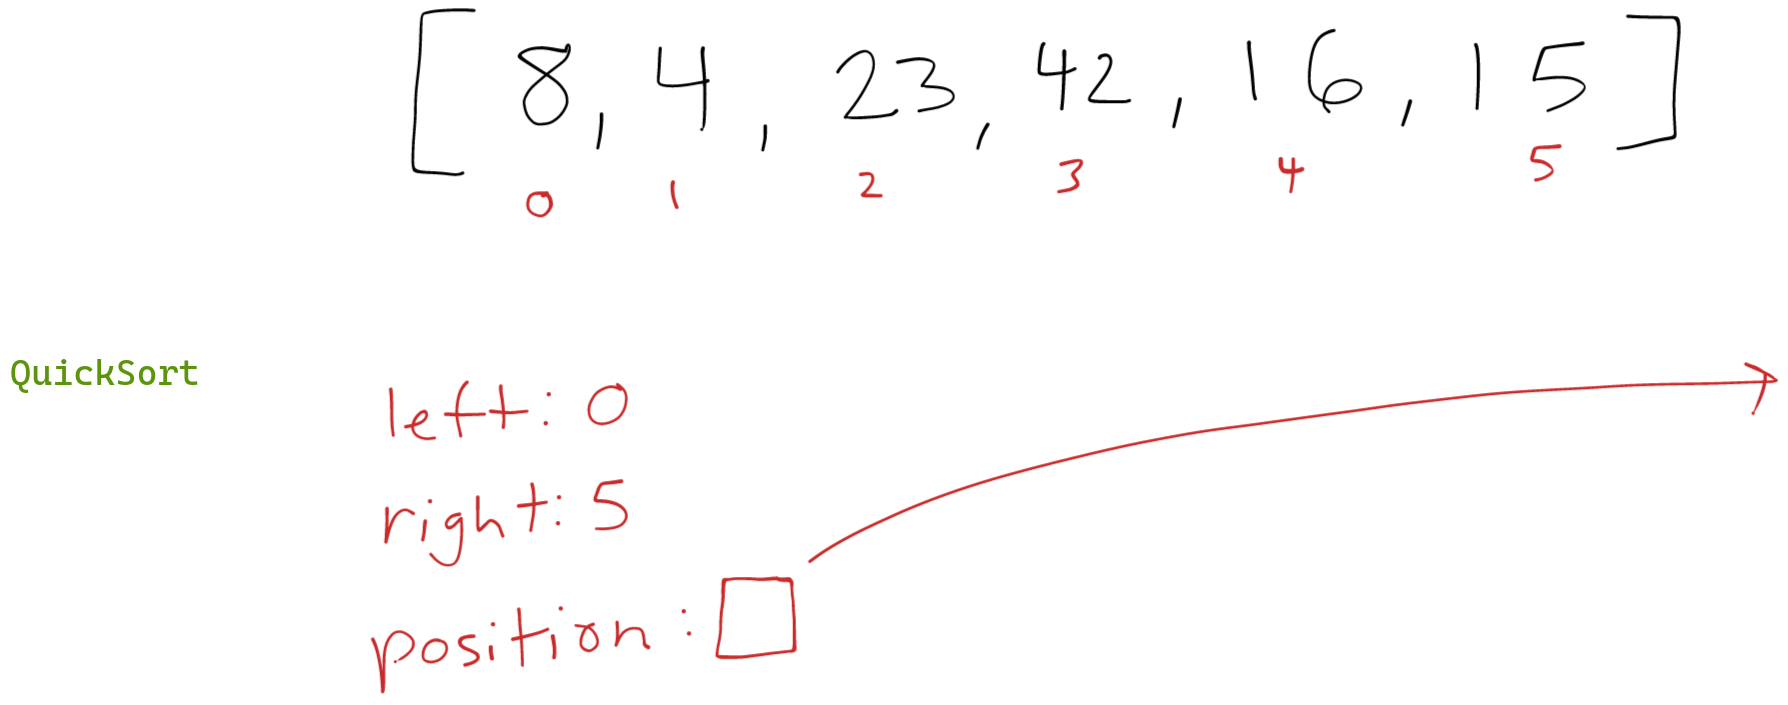 [ 8, 4, 23, 42, 16, 15 ]
0 1 2 3 4 5
QuickSort
left: 0
right: 5
position: